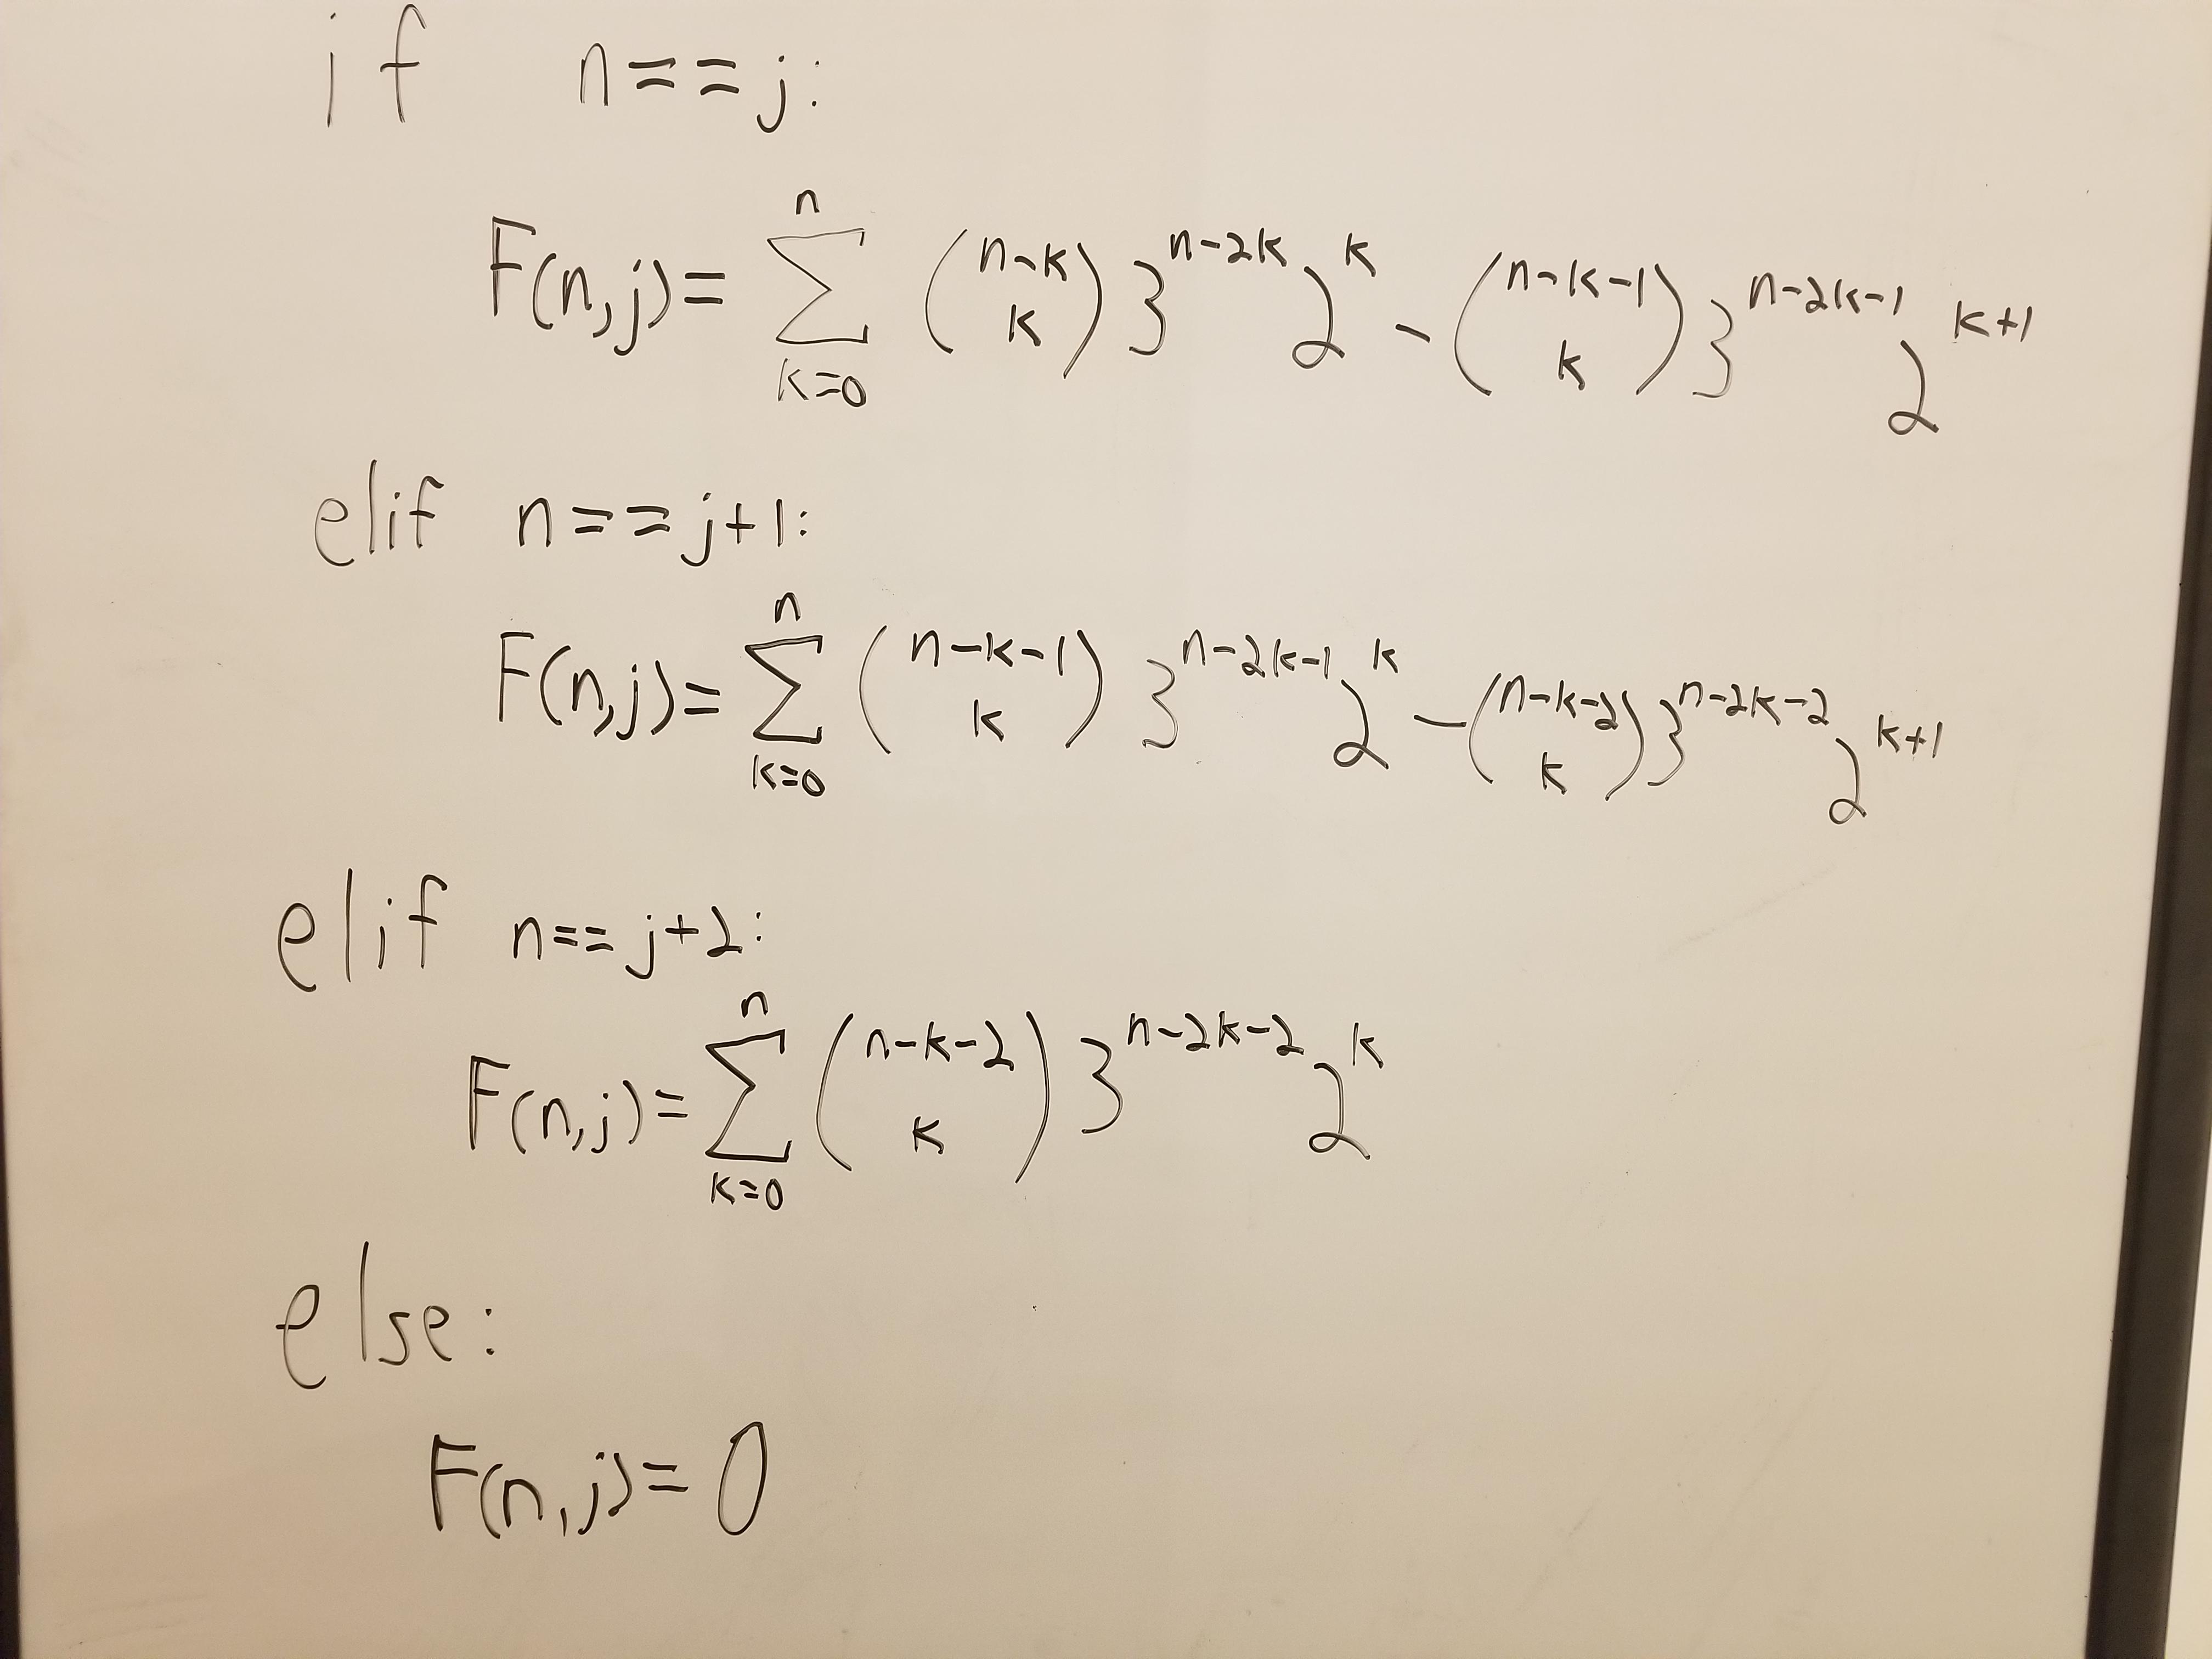 if n==j:
F(n,j)= \sum_{k=0}^{n} \binom{n-k}{k} 3^{n-2k} 2^{k} - \binom{n-k-1}{k} 3^{n-2k-1} 2^{k+1}
elif n==j+1:
F(n,j)= \sum_{k=0}^{n} \binom{n-k-1}{k} 3^{n-2k-1} 2^{k} - \binom{n-k-2}{k} 3^{n-2k-2} 2^{k+1}
elif n==j+2:
F(n,j)= \sum_{k=0}^{n} \binom{n-k-2}{k} 3^{n-2k-2} 2^{k}
else:
F(n,j)= 0